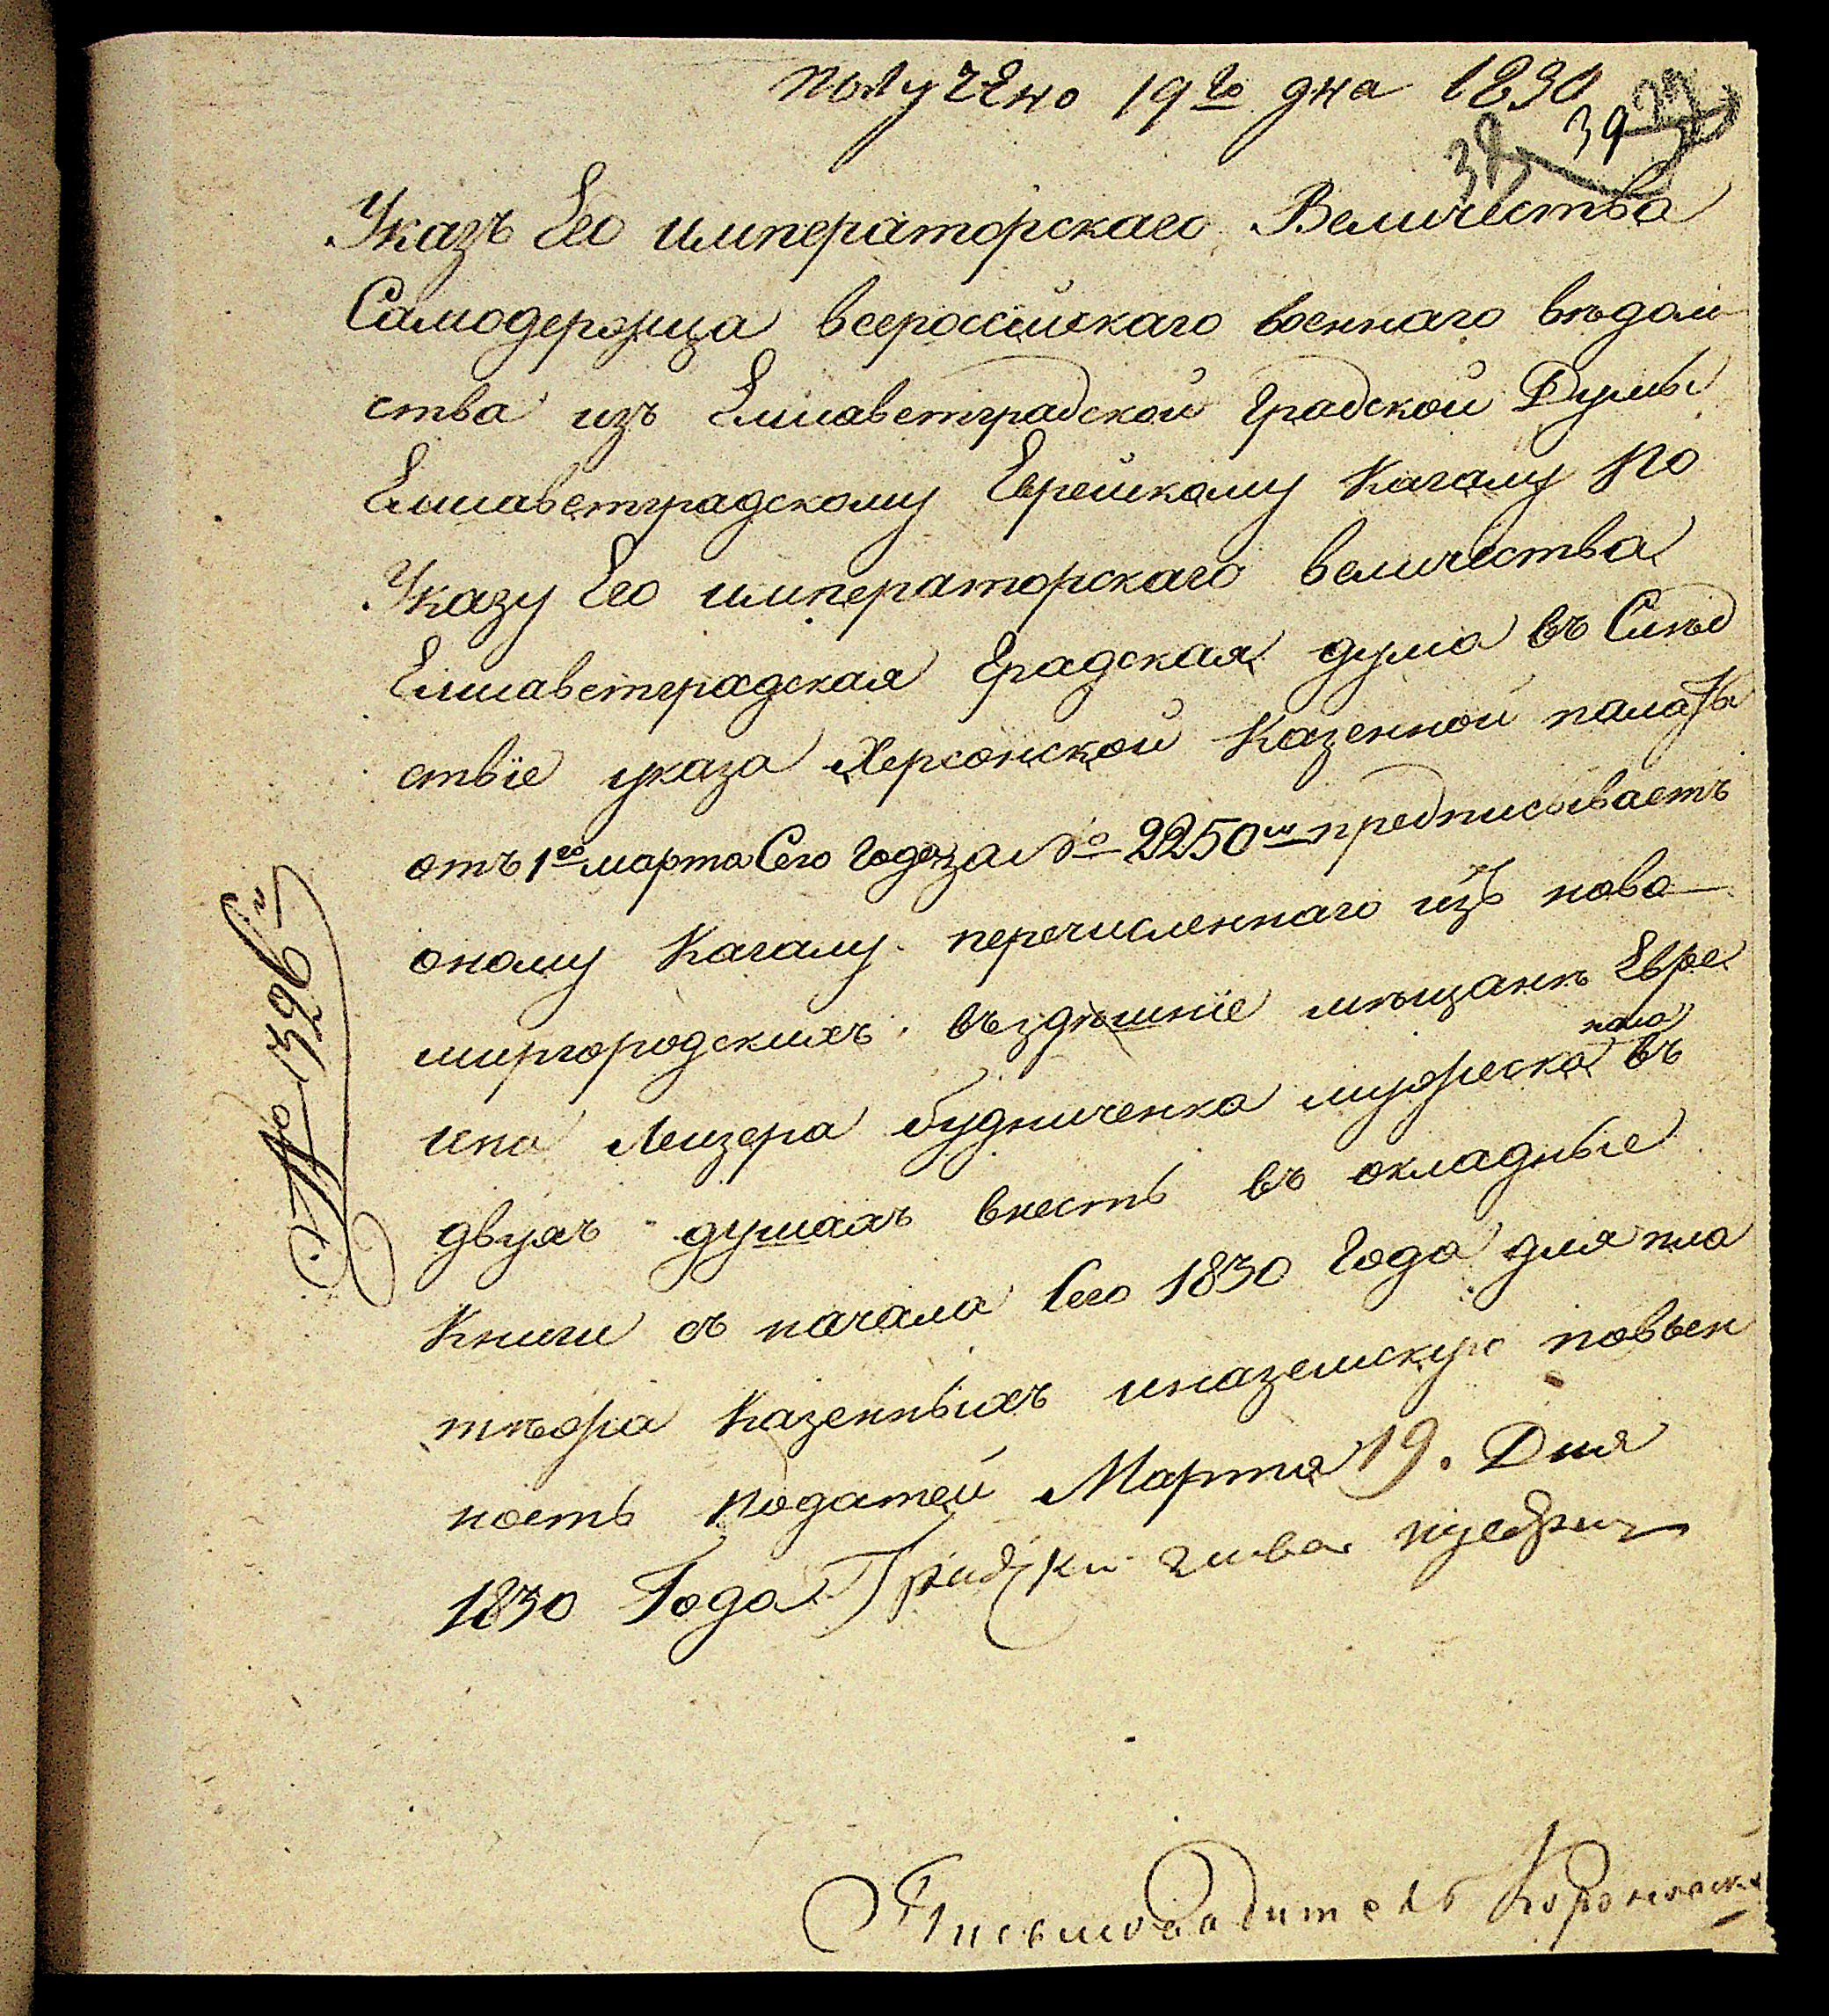 получено 19го дня 1830
39
38
Указъ Его императорскаго Величества
Самодержца всероссійскаго военнаго вѣдом
ства изъ Елисаветградской Градской Думы
Елисаветградскому Еврейскому Кагалу По
Указу Его императорскаго величества
Елисаветградская Градская дума въ Слѣд
ствіе указа Херсонской Казенной палаты
отъ 1го марта Сего Года за № 2250м предписываетъ
оному Кагалу перечисленнаго изъ ново
миргородскихъ въ здѣшніе мѣщанѣ Евре
ина Лейзера будниченка мужеска пола въ
двухъ душахъ внесть въ окладные
Книги съ начала Сего 1830 Года для пла
тѣжа Казенныхъ иназемскую повъен
ность податей Марта 19. Дня
1830 Года Градски глава
№ 1326й
Письмоводитель